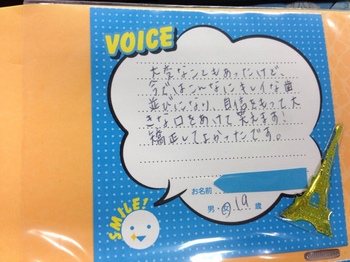 VOICE
大変なこともあったけど、
今ではこんなにキレイな歯
並びになり、自信をもって大
きな口をあけて笑えます!
矯正してよかったです。
お名前
男・女 19 歳
SMILE!